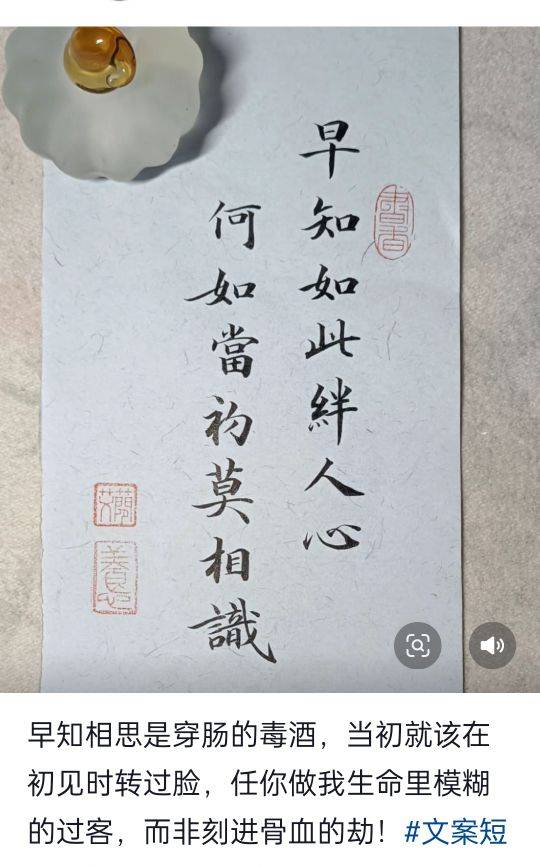 早知如此絆人心
何如當初莫相識
早知相思是穿肠的毒酒，当初就该在
初见时转过脸，任你做我生命里模糊
的过客，而非刻进骨血的劫！#文案短